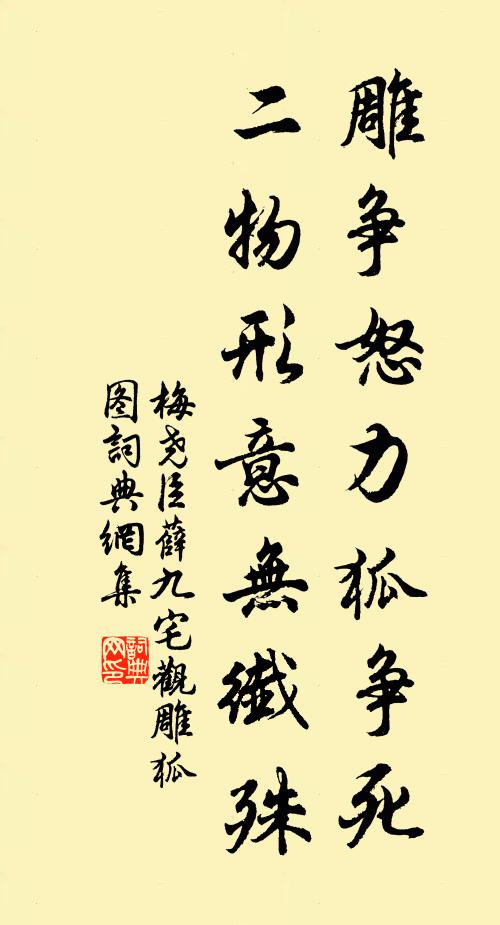 雕争怒力狐争死
二物形意無纖殊
梅尧臣薛九宅觀雕狐
图詞典網集
詞典网印